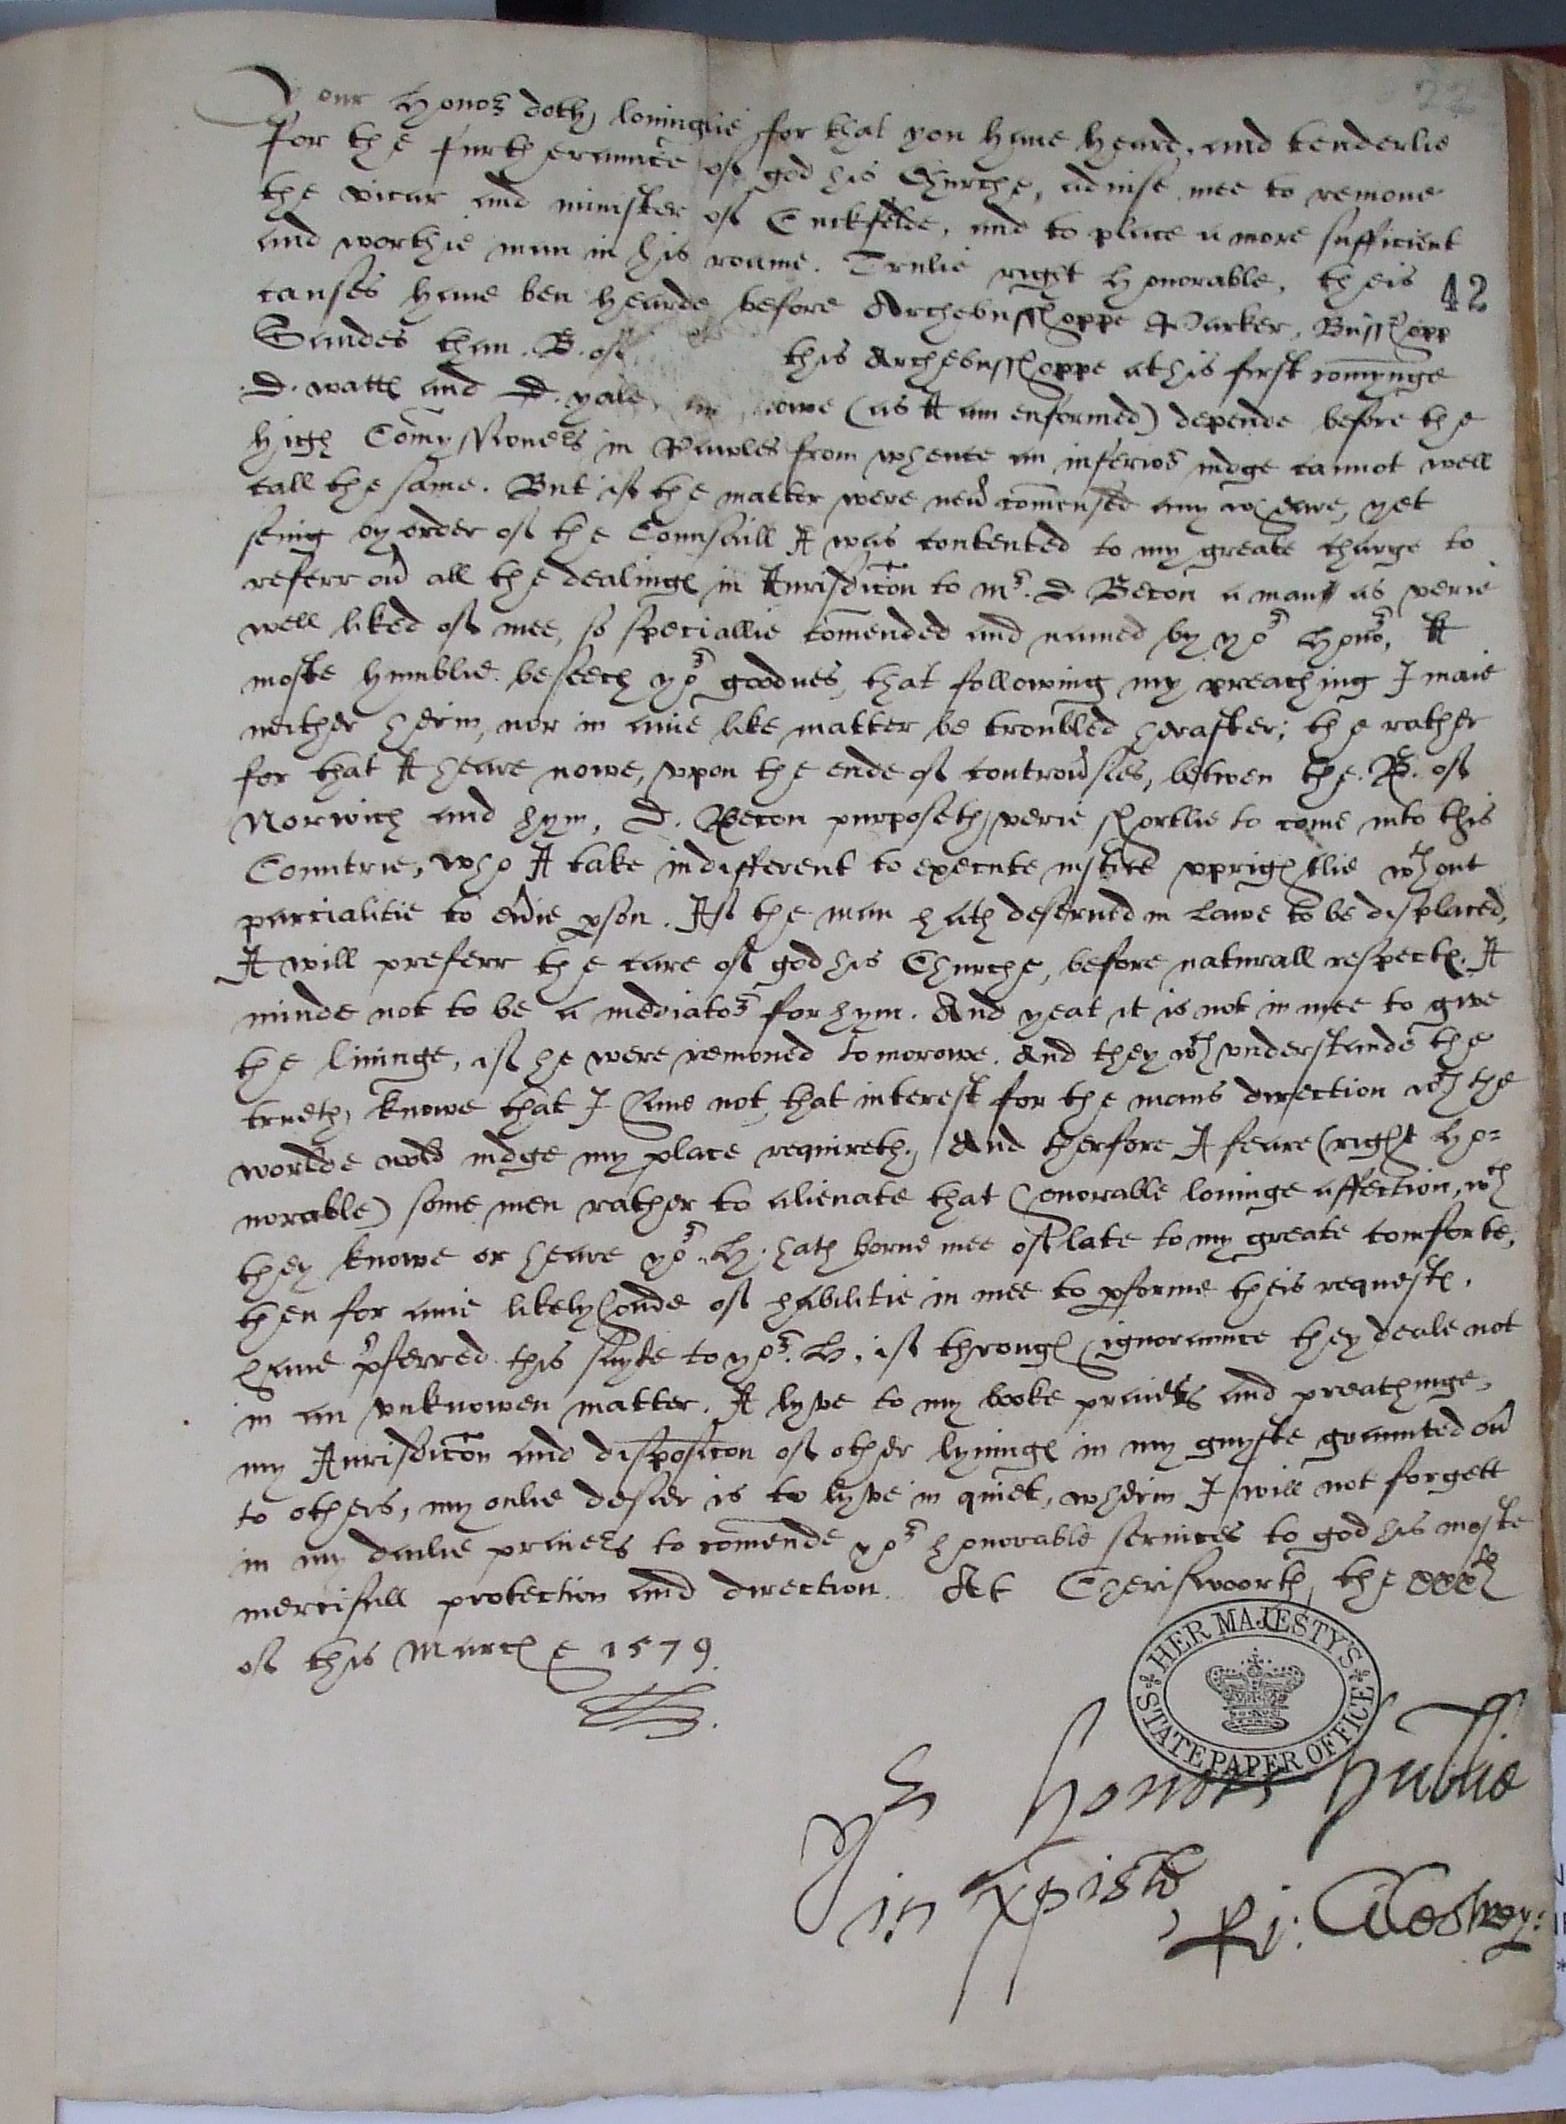 22
Your honor doth lovinglie for that you have heard, and tenderlie
for the furtheraunce of god his Churche, advise mee to remove
the vicar and minister of Cuckfelde, and to place a more sufficient
and worthie man in his roume. Trulie right honorable, theis
42
causes have ben hearde before Archebusshoppe Parker, Busshopp
Sandes than B. of this Archebusshoppe at his first comynge
D. Watts and D. Yale, nowe (as I am enformed) depende before the
high Comyssioners in Pawles from whence an inferior iudge cannot well
call the same. But if the matter were new comensed any wheare, yet
seing by order of the Counsaill I was contented to my greate charge to
referr over all the dealings in Iurisdiction to Mr. D Becon a man as verie
well liked of mee, so speciallie comended and named by yor honor, I
moste humblie beseech yor goodnes, that following my preaching I maie
neither herin, nor in anie like matter be troubled herafter; the rather
for that I heare nowe, uppon the ende of controversies, betwen the B. of
Norwich and hym, D. Becon purposeth verie shortlie to come into this
Countrie, who I take indifferent to execute iustice uprightlie wthout
parcialitie to everie pson. If the man hath deserved in Lawe to be displaced,
I will preferr the care of god his Churche, before naturall respects. I
minde not to be a mediator for hym. And yeat it is not in mee to give
the livinge, if he were removed tomorowe. And they wch understande the
trueth, knowe that I have not that interest for the mans direction wch the
worlde wold iudge my place requireth. And therfore I feare (right ho=
norable) some men rather to alienate that honorable lovinge affection, wch
they knowe or heare yor. H. hath borne mee of late to my greate comforte,
then for anie likelyhoode of habilitie in mee to pforme theis requests,
have pferred this suyte to yor. H. if through ignoraunce they deale not
in an unknowen matter. I lyve to my booke praiers and preachinge,
my Iurisdiction and disposicon of other lyvings in my guyfte graunted over
to others, my onlie desier is to lyve in quiet, wherin I will not forgett
in my dailie praiers to comende yor honorable services to god his moste
mercifull protection and direction. At the xxvth
of this Marche 1579.
Yr honors huble
in Xpisto,
Ri: Cicestren:
HER MAJESTY'S STATE PAPER OFFICE